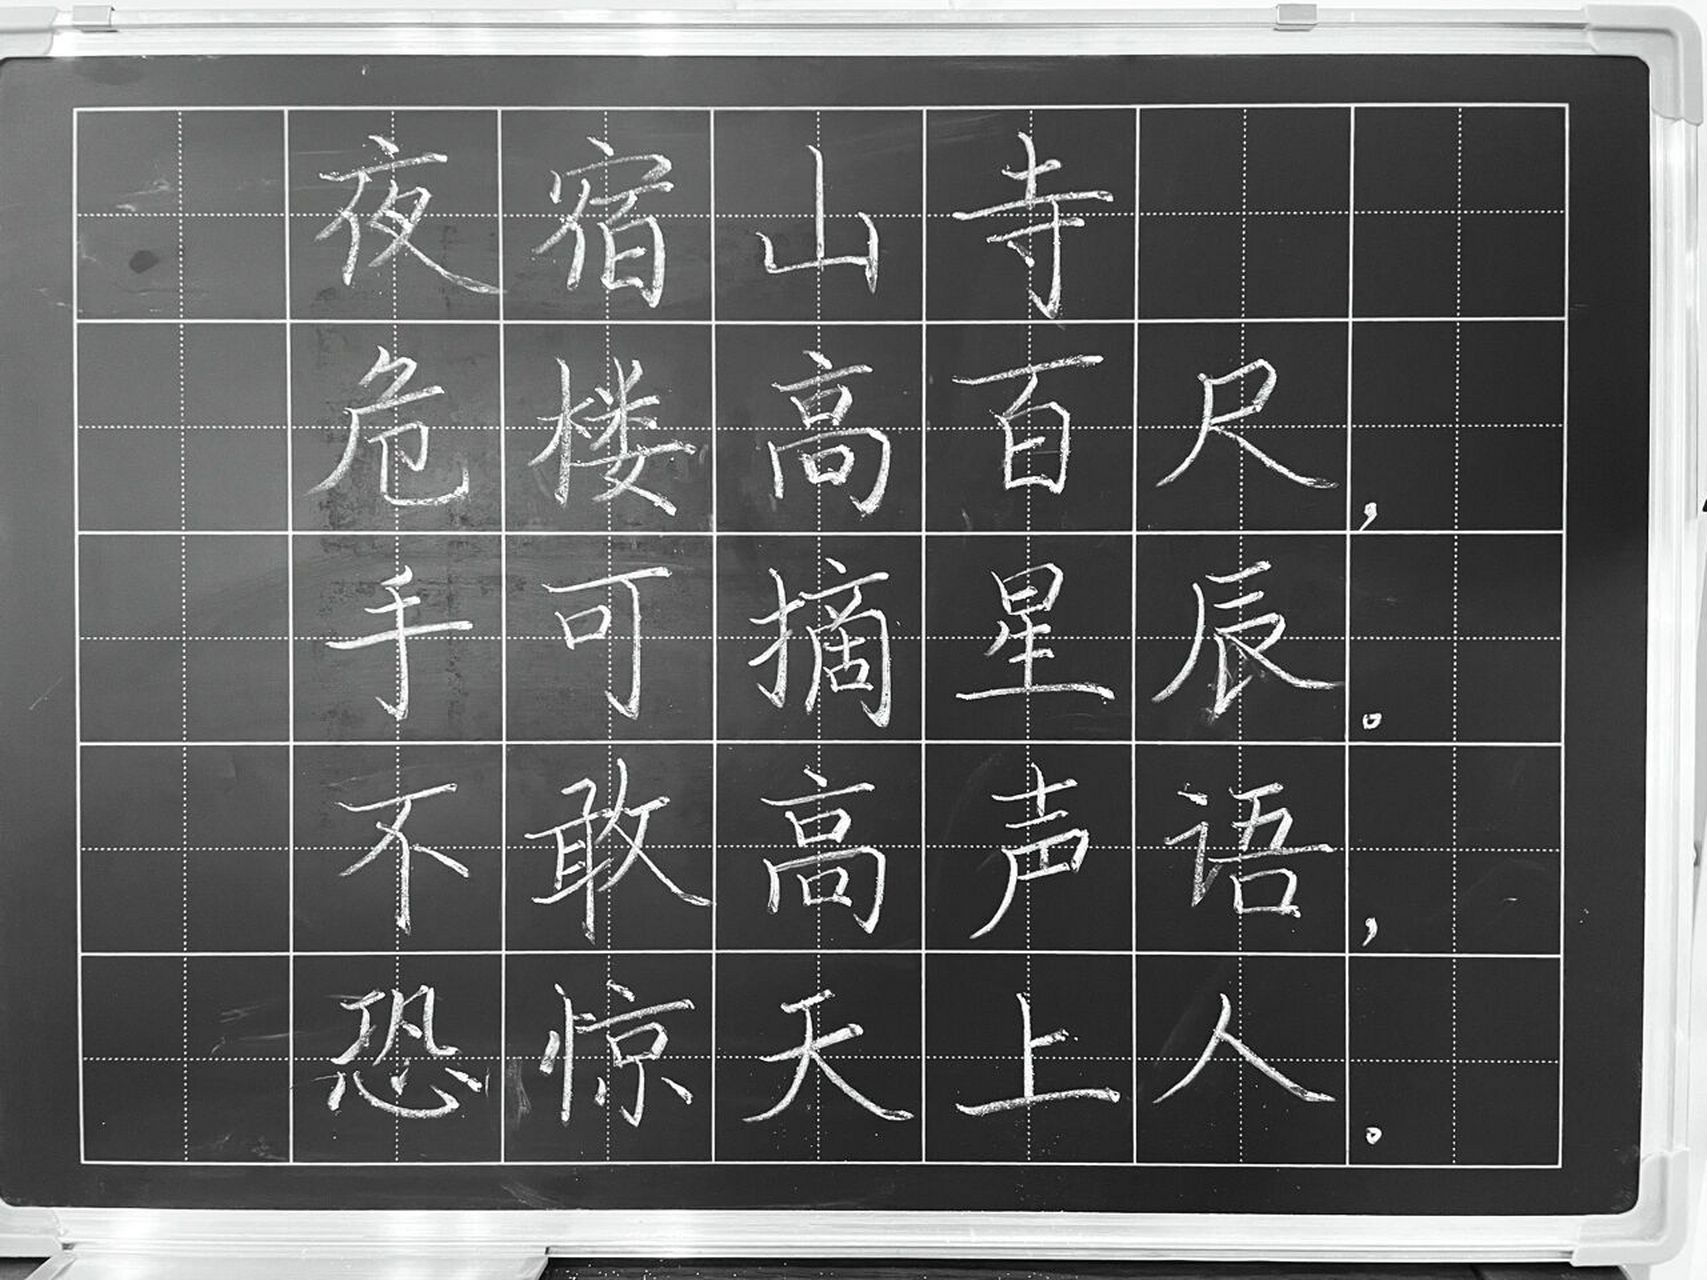 夜宿山寺
危楼高百尺，
手可摘星辰。
不敢高声语，
恐惊天上人。